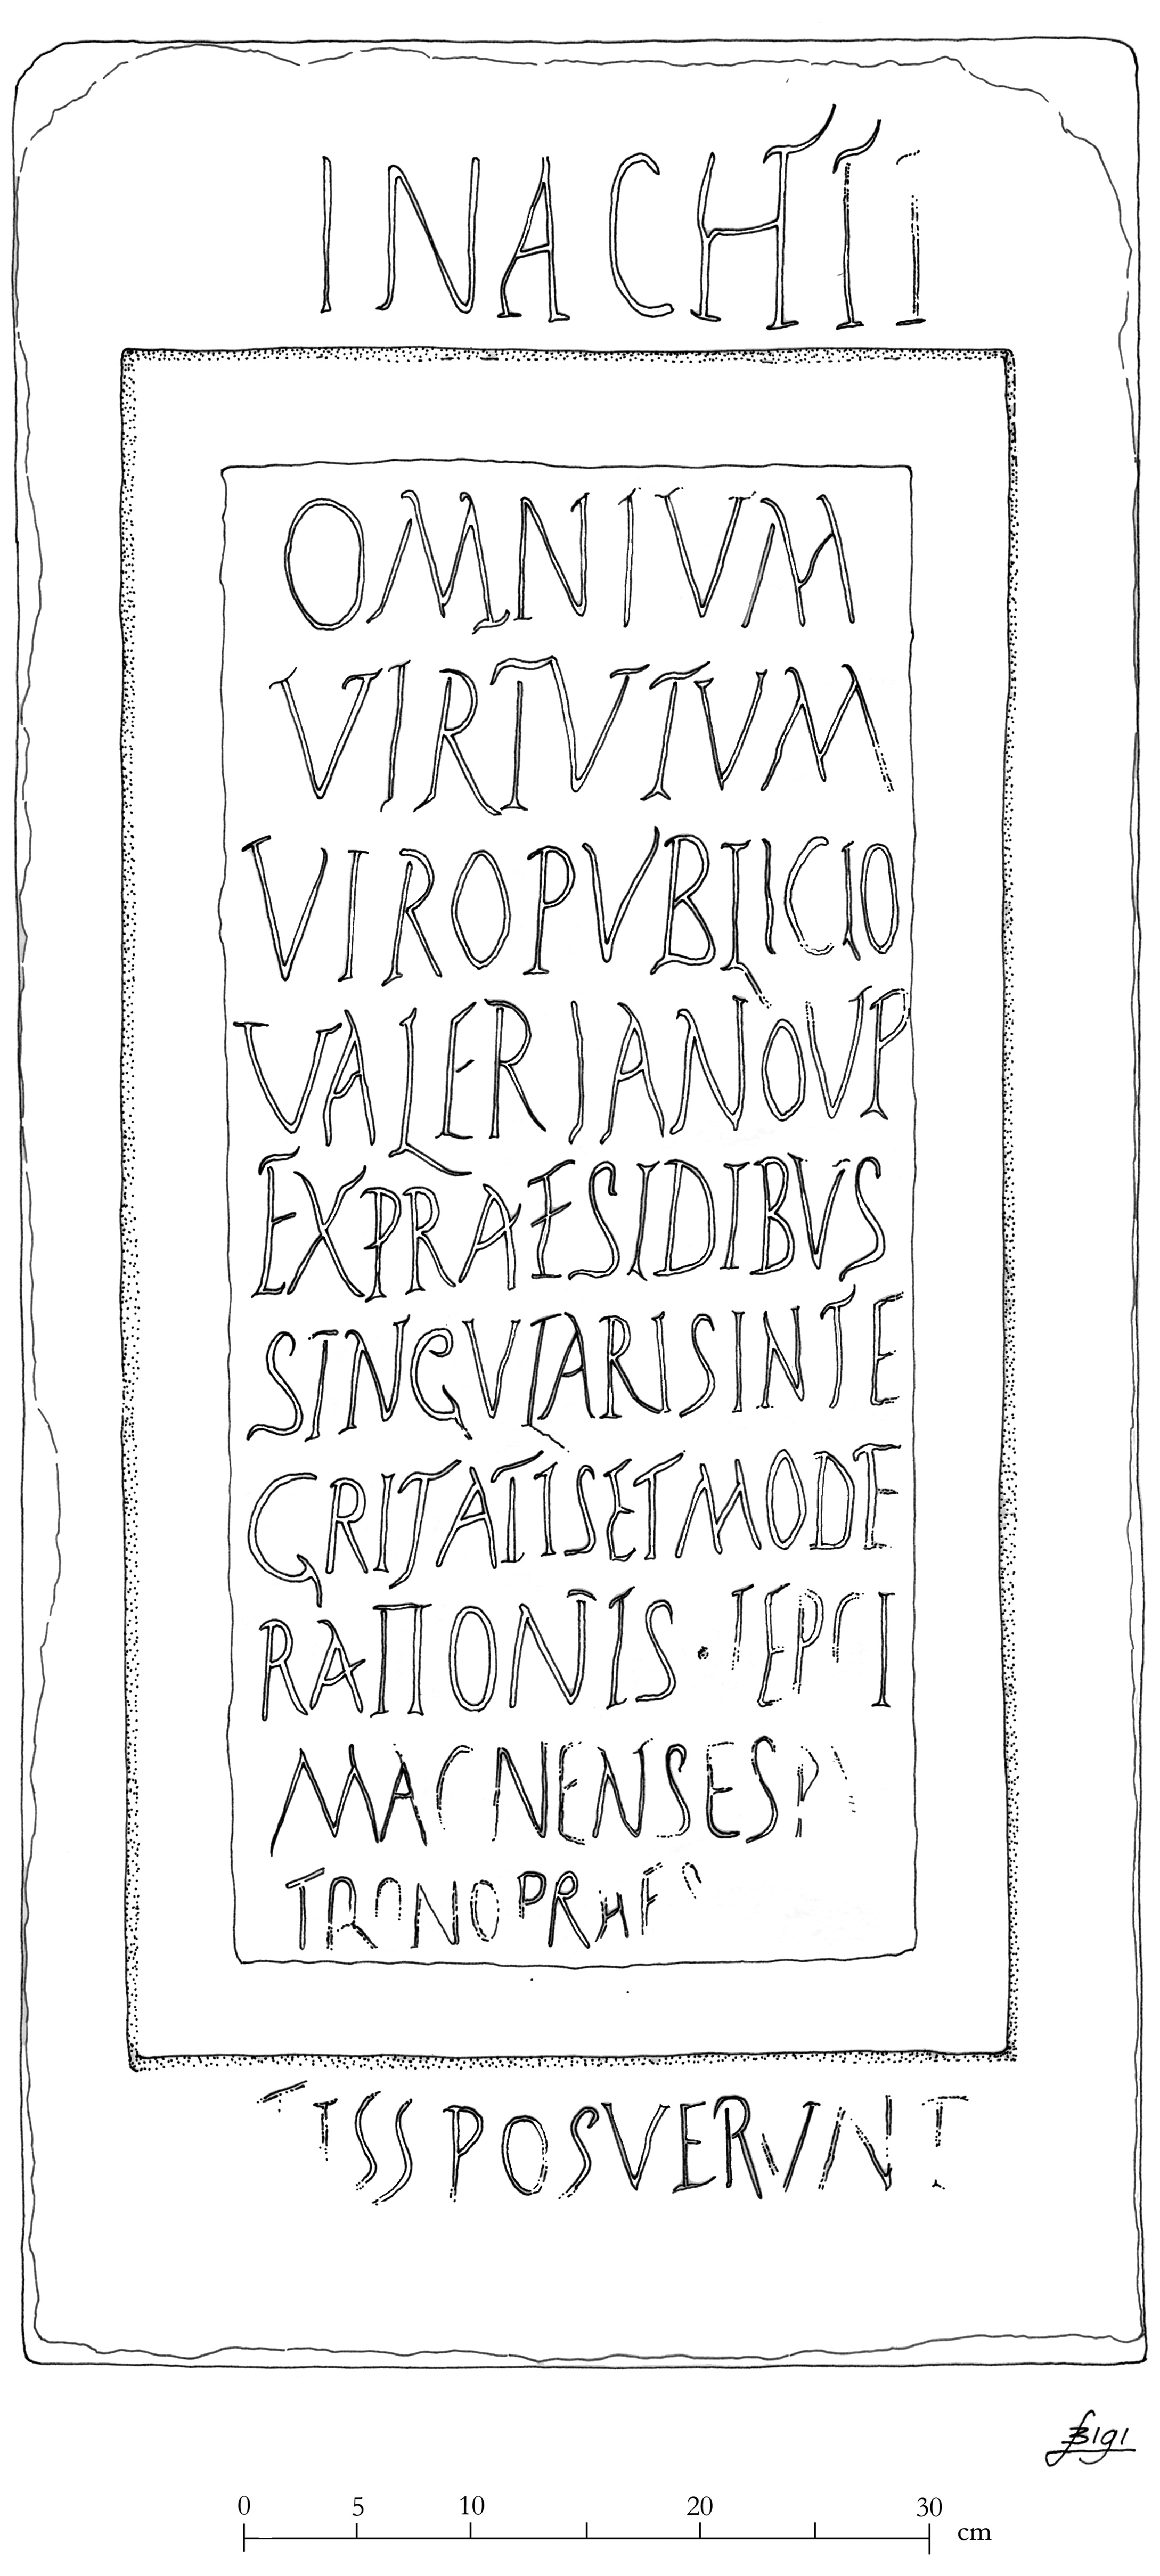 INACHTI
OMNIVM
VIRTVTVM
VIRO PVBLICIO
VALERIANO VP
EX PRAESIDIBVS
SINGVLARIS INTE
GRITATIS ET MODE
RATIONIS · LEPCI
MAGNENSES PA
TRONO PRAES
TISS POSVERVNT
Bigi
0 5 10 20 30 cm